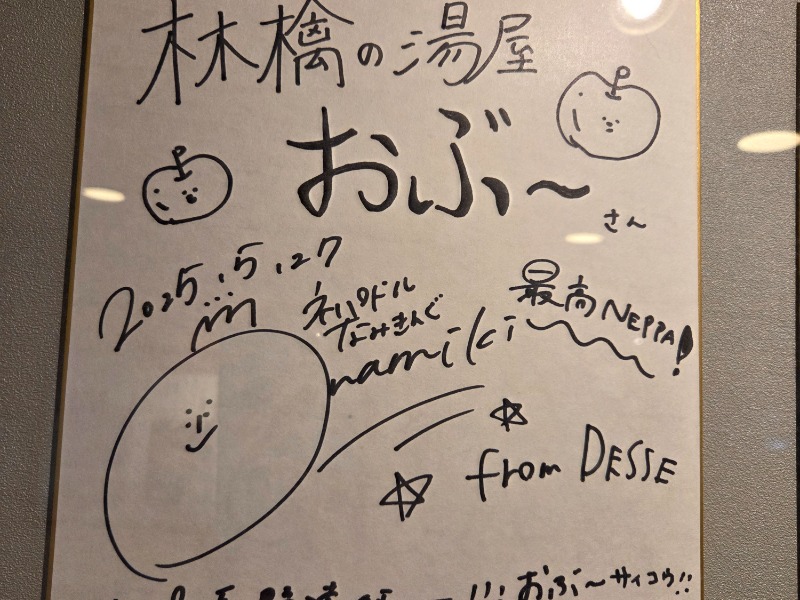 林檎の湯屋
おぶ～
さん
2025.5.27
ネパリドル
なみきんぐ
namiki
最高NEPPA!
from DESSE
おぶ～サイコウ!!